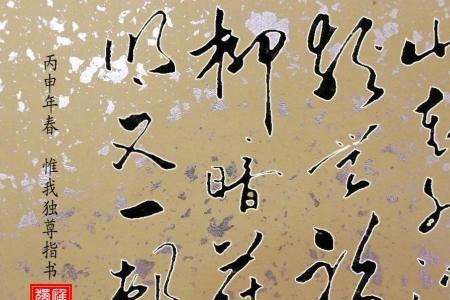 山重水
疑无路
柳暗花
明又一
丙申年春 惟我独尊指书